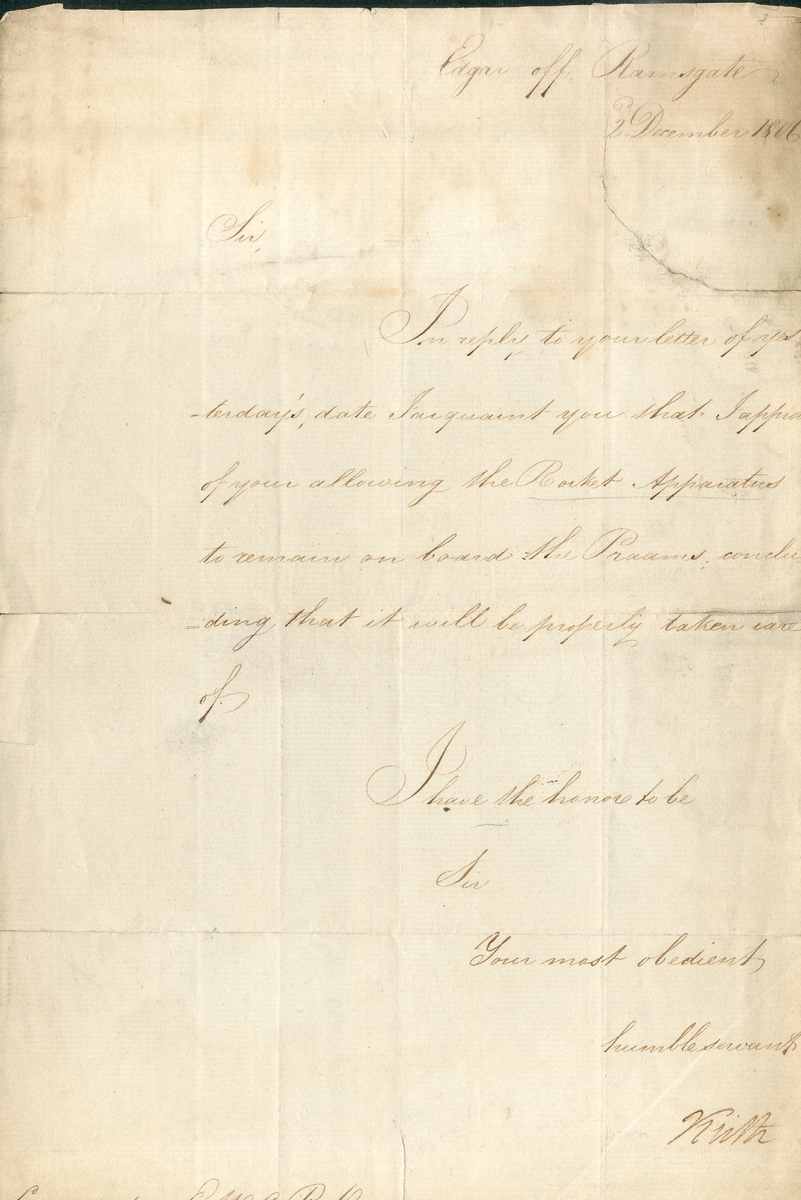 Edgar off Ramsgate
2d December 1806
Sir,
In reply to your letter of yes
-terday's, date I acquaint you that I appro
of your allowing the Rocket Apparatus
to remain on board the Praams, conclu
=ding that it will be properly taken care
of.
I have the honor to be
Sir
Your most obedient
humble servant
Keith